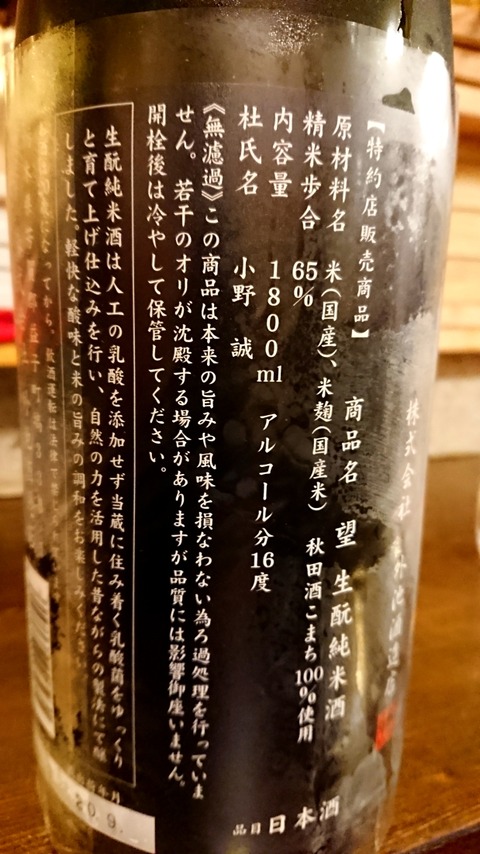 株式会社 外池酒造店
【特約店販売商品】 商品名 望 生酛純米酒
原材料名 米(国産)、米麹(国産米) 秋田酒こまち100%使用
精米歩合 65%
内容量 1800ml アルコール分16度
杜氏名 小野 誠
品目 日本酒
《無濾過》この商品は本来の旨みや風味を損なわない為ろ過処理を行っていま
せん。若干のオリが沈殿する場合がありますが品質には影響御座いません。
開栓後は冷やして保管してください。
生酛純米酒は人工の乳酸を添加せず当蔵に住み着く乳酸菌をゆっくり
と育て上げ仕込みを行い、自然の力を活用した昔ながらの製法にて醸
しました。軽快な酸味と米の旨みの調和をお楽しみください
になってから。飲酒運転は法律で
年月
20.9.